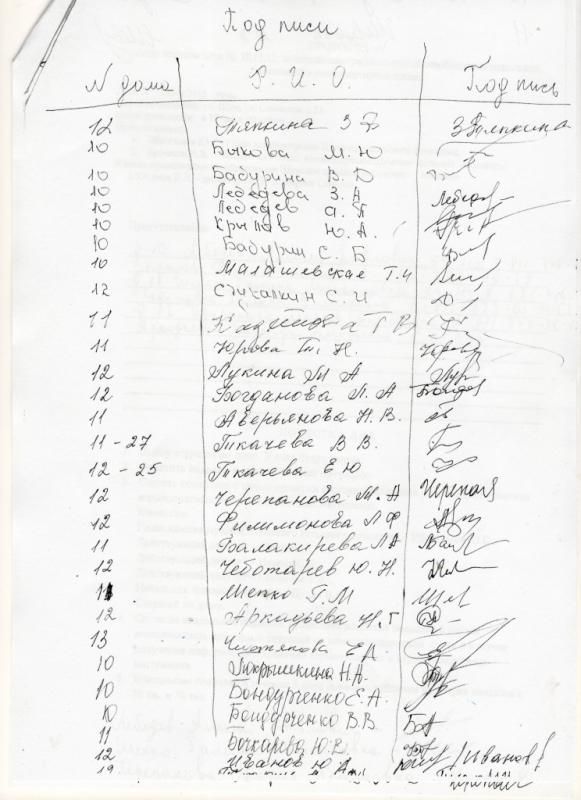 Подписи
N дома Ф. И. О. Подпись
12 Тяпкина З Ф З Тяпкина
10 Быкова М. Ю
10 Бабурина В. Ю
10 Лебедева З. А
10 Лебедев А. П
10 Крылов Ю. А.
10 Бабурин С. Б
10 Малашевская Т. И
12 Стукалкин С. И
11 Т В
11 Юрова Т. Н.
12 Лукина М А
12 Богданова Л. А
11 Аверьянова Н. В.
11 - 27 Ткачева В В.
12 - 25 Ткачева Е Ю
12 Черепанова М. А
12 Филимонова Л Ф
11 Балакирева Л А
12 Чеботарев Ю. Н.
11 Шепко Г. М
12 Аркадьева Н. Г
13 Чистякова Е Д
10 Покрышкина Н. А.
10 Бондурченко Е. А.
10 Бондурченко В. В.
11 Бочкарева Ю. В.
12 Иванов Ю А Иванов
19